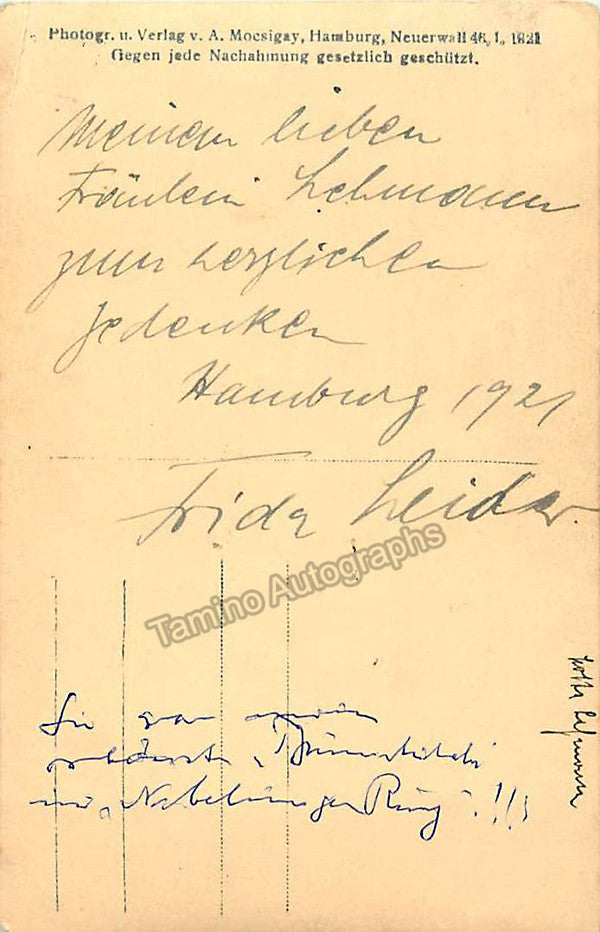 Photogr. u. Verlag v. A. Mocsigay, Hamburg, Neuerwall 46, I., 1921
Gegen jede Nachahmung gesetzlich geschützt.
Meinem lieben
Fräulein Lehmann
zum herzlichen
Gedenken
Hamburg 1921
Frida Leider.
Tamino Autographs
Sie war
"
"Nibelungen Ring"!!!
Lotte Lehmann